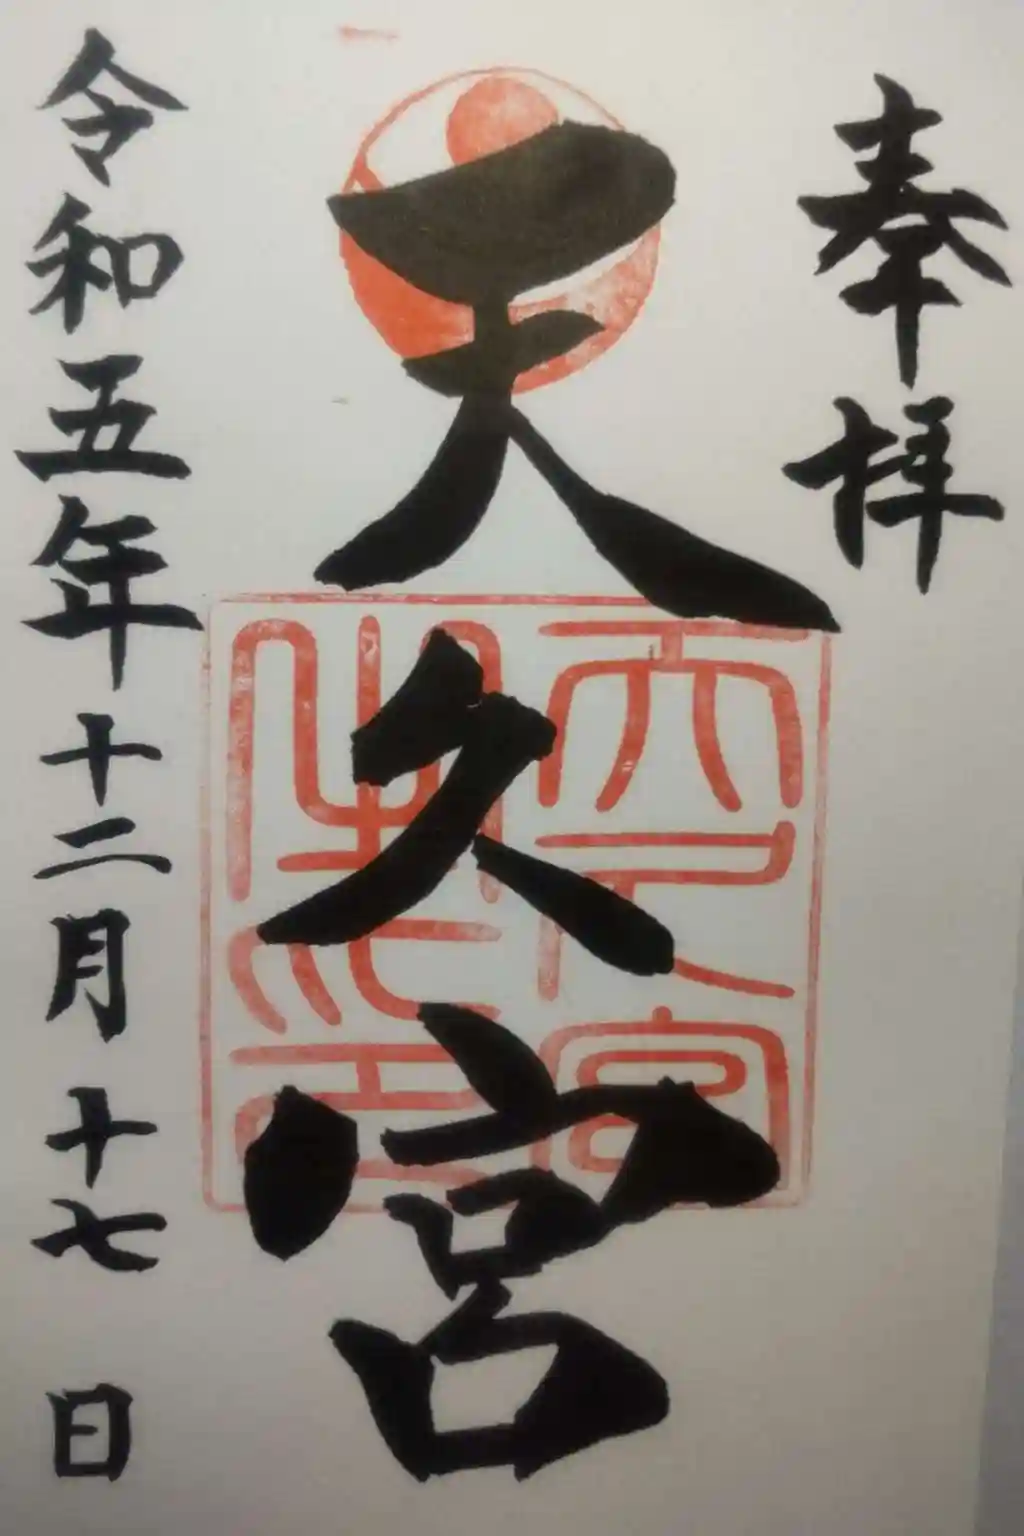 奉拝
天久宮
天久宮
令和五年十二月十七日